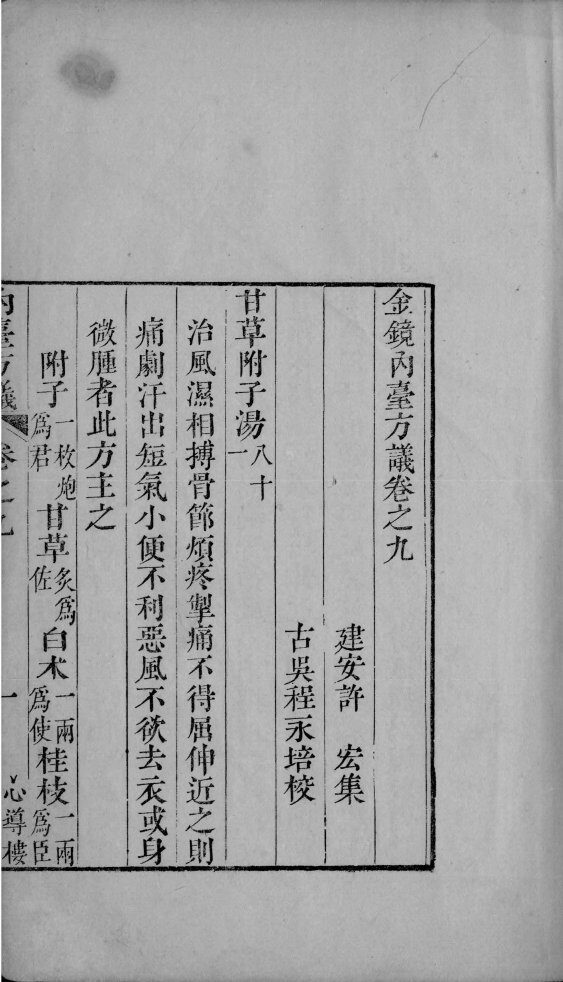 金鏡內臺方議卷之九
建安許 宏集
古吳程永培校
甘草附子湯八十一
治風濕相搏骨節煩疼掣痛不得屈伸近之則
痛劇汗出短氣小便不利惡風不欲去衣或身
微腫者此方主之
附子一枚炮為君甘草炙為佐白朮一兩為使桂枝一兩為臣
內臺方議 卷之九 一 心導樓